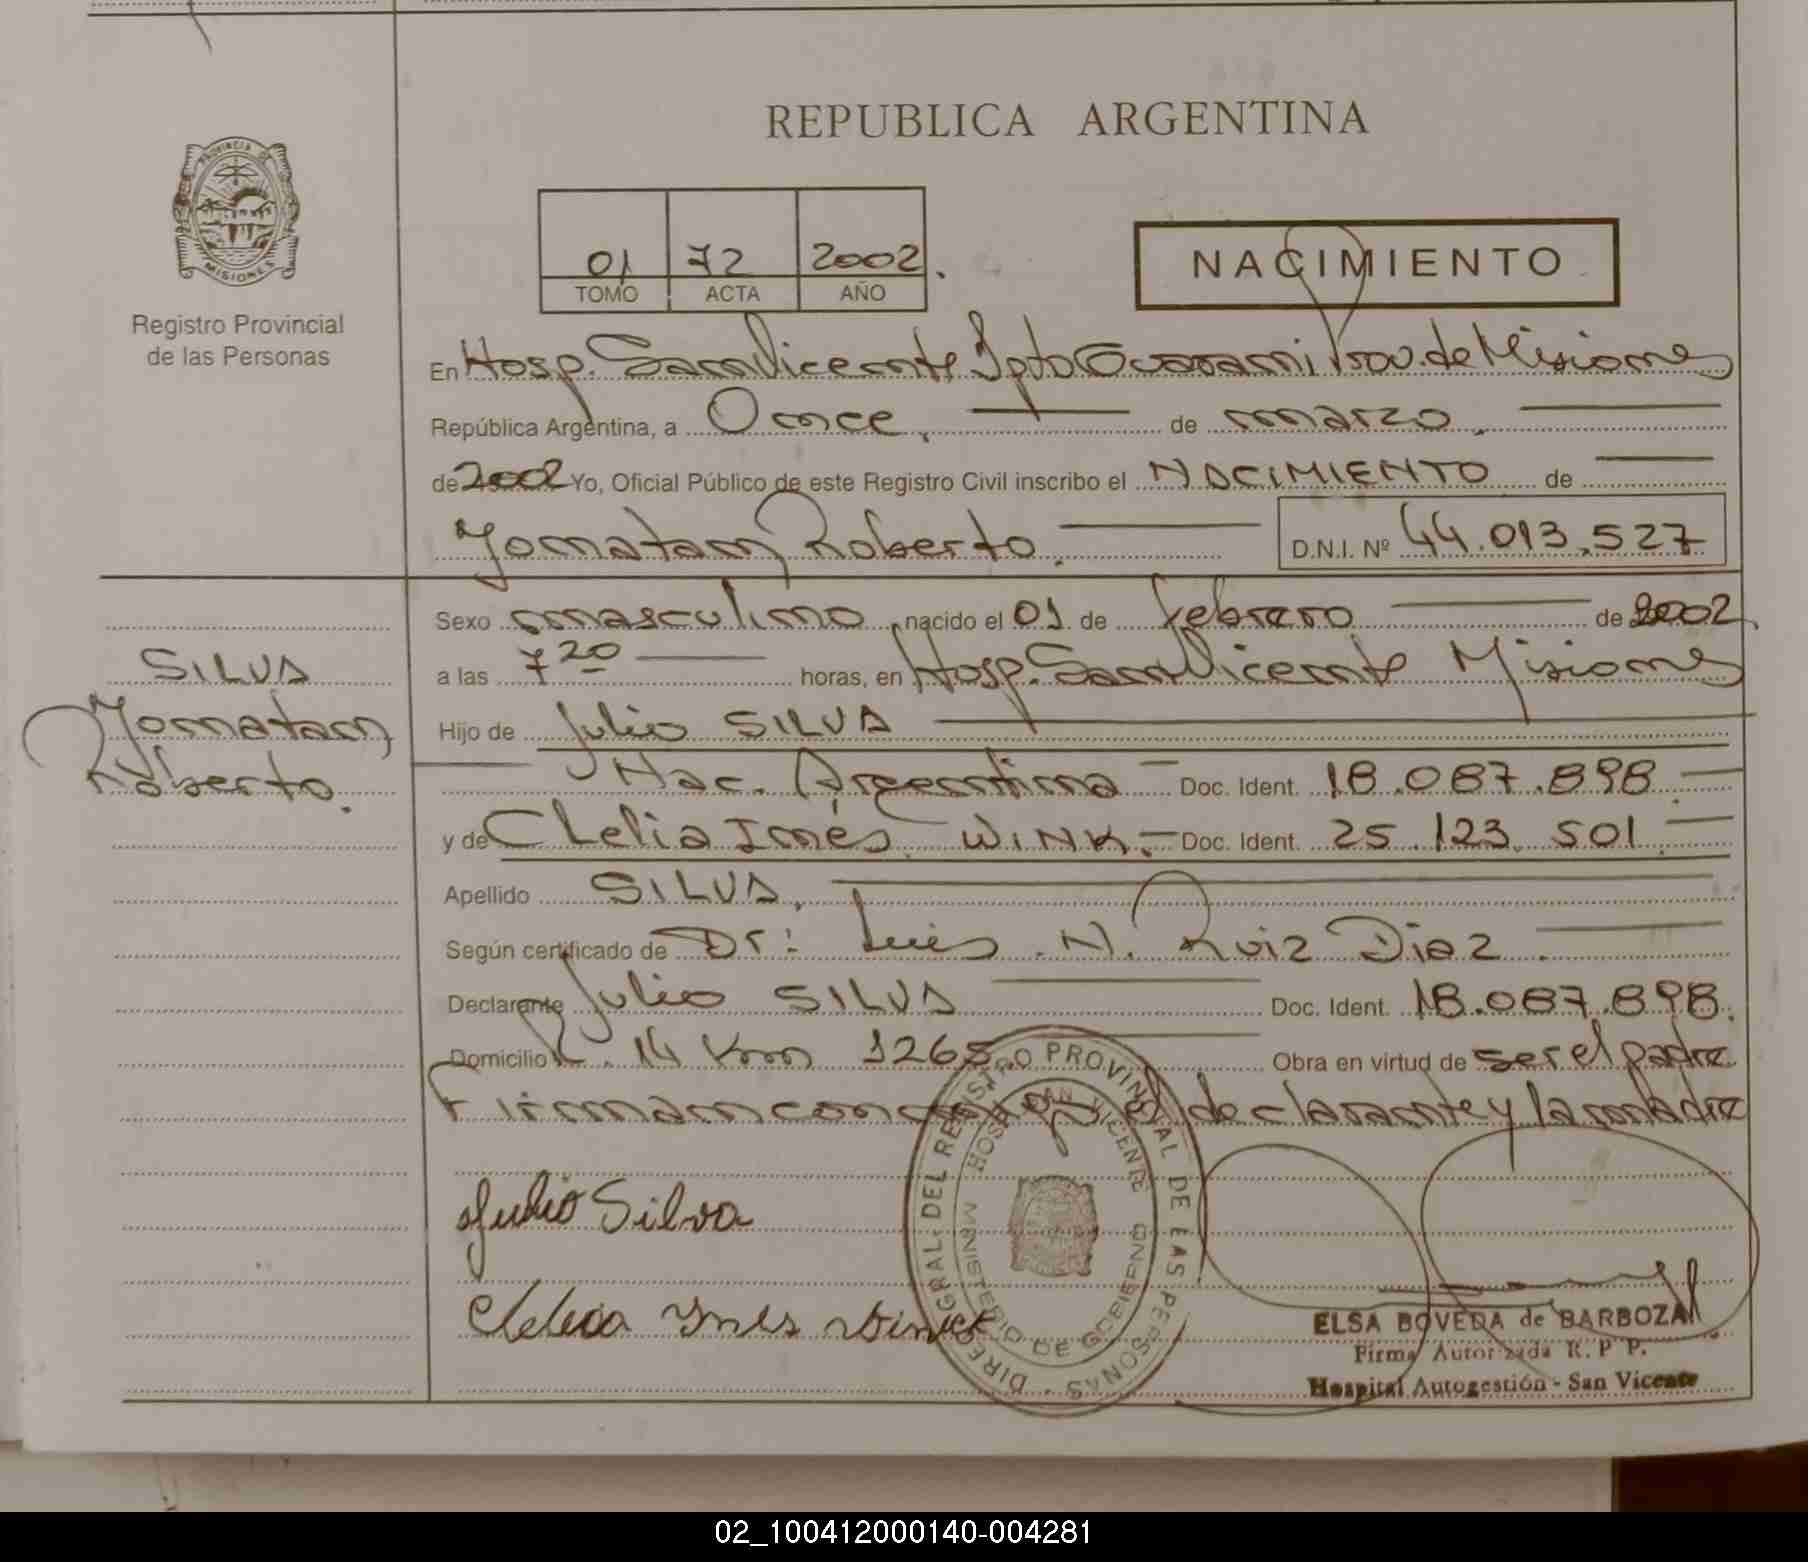 REPUBLICA ARGENTINA
PROVINCIA DE
MISIONES
Registro Provincial
de las Personas
01 72 2002.
TOMO ACTA AÑO
NACIMIENTO
En Hosp. San Vicente Dpto Guarani Prov. de Misiones
República Argentina, a Once, de marzo
de 2002 Yo, Oficial Público de este Registro Civil inscribo el NACIMIENTO de
Yonatan Roberto. D.N.I. Nº 44.013.527
Sexo masculino, nacido el 01 de febrero de 2002
a las 7 20 horas, en Hosp. San Vicente Misiones
SILVA
Yonatan
Roberto.
Hijo de Julio SILVA
Nac. Argentina Doc. Ident. 18.087.898
y de Clelia Inés WINK. Doc. Ident. 25.123.501
Apellido SILVA,
Según certificado de Dr: Luis N. Ruiz Diaz
Declarante Julio SILVA Doc. Ident. 18.087.898.
Domicilio R. 14 Km 1265 Obra en virtud de ser el padre
Firman conmigo el declarante y la madre
DIREC. GRAL. DEL REGISTRO PROVINCIAL DE LAS PERSONAS
HOSP. SAN VICENTE
MINISTERIO DE GOBIERNO
Julio Silva
Clelia Ynes Wink
ELSA BOVEDA de BARBOZA
Firma Autorizada R. P P.
Hospital Autogestión - San Vicente
02_100412000140-004281